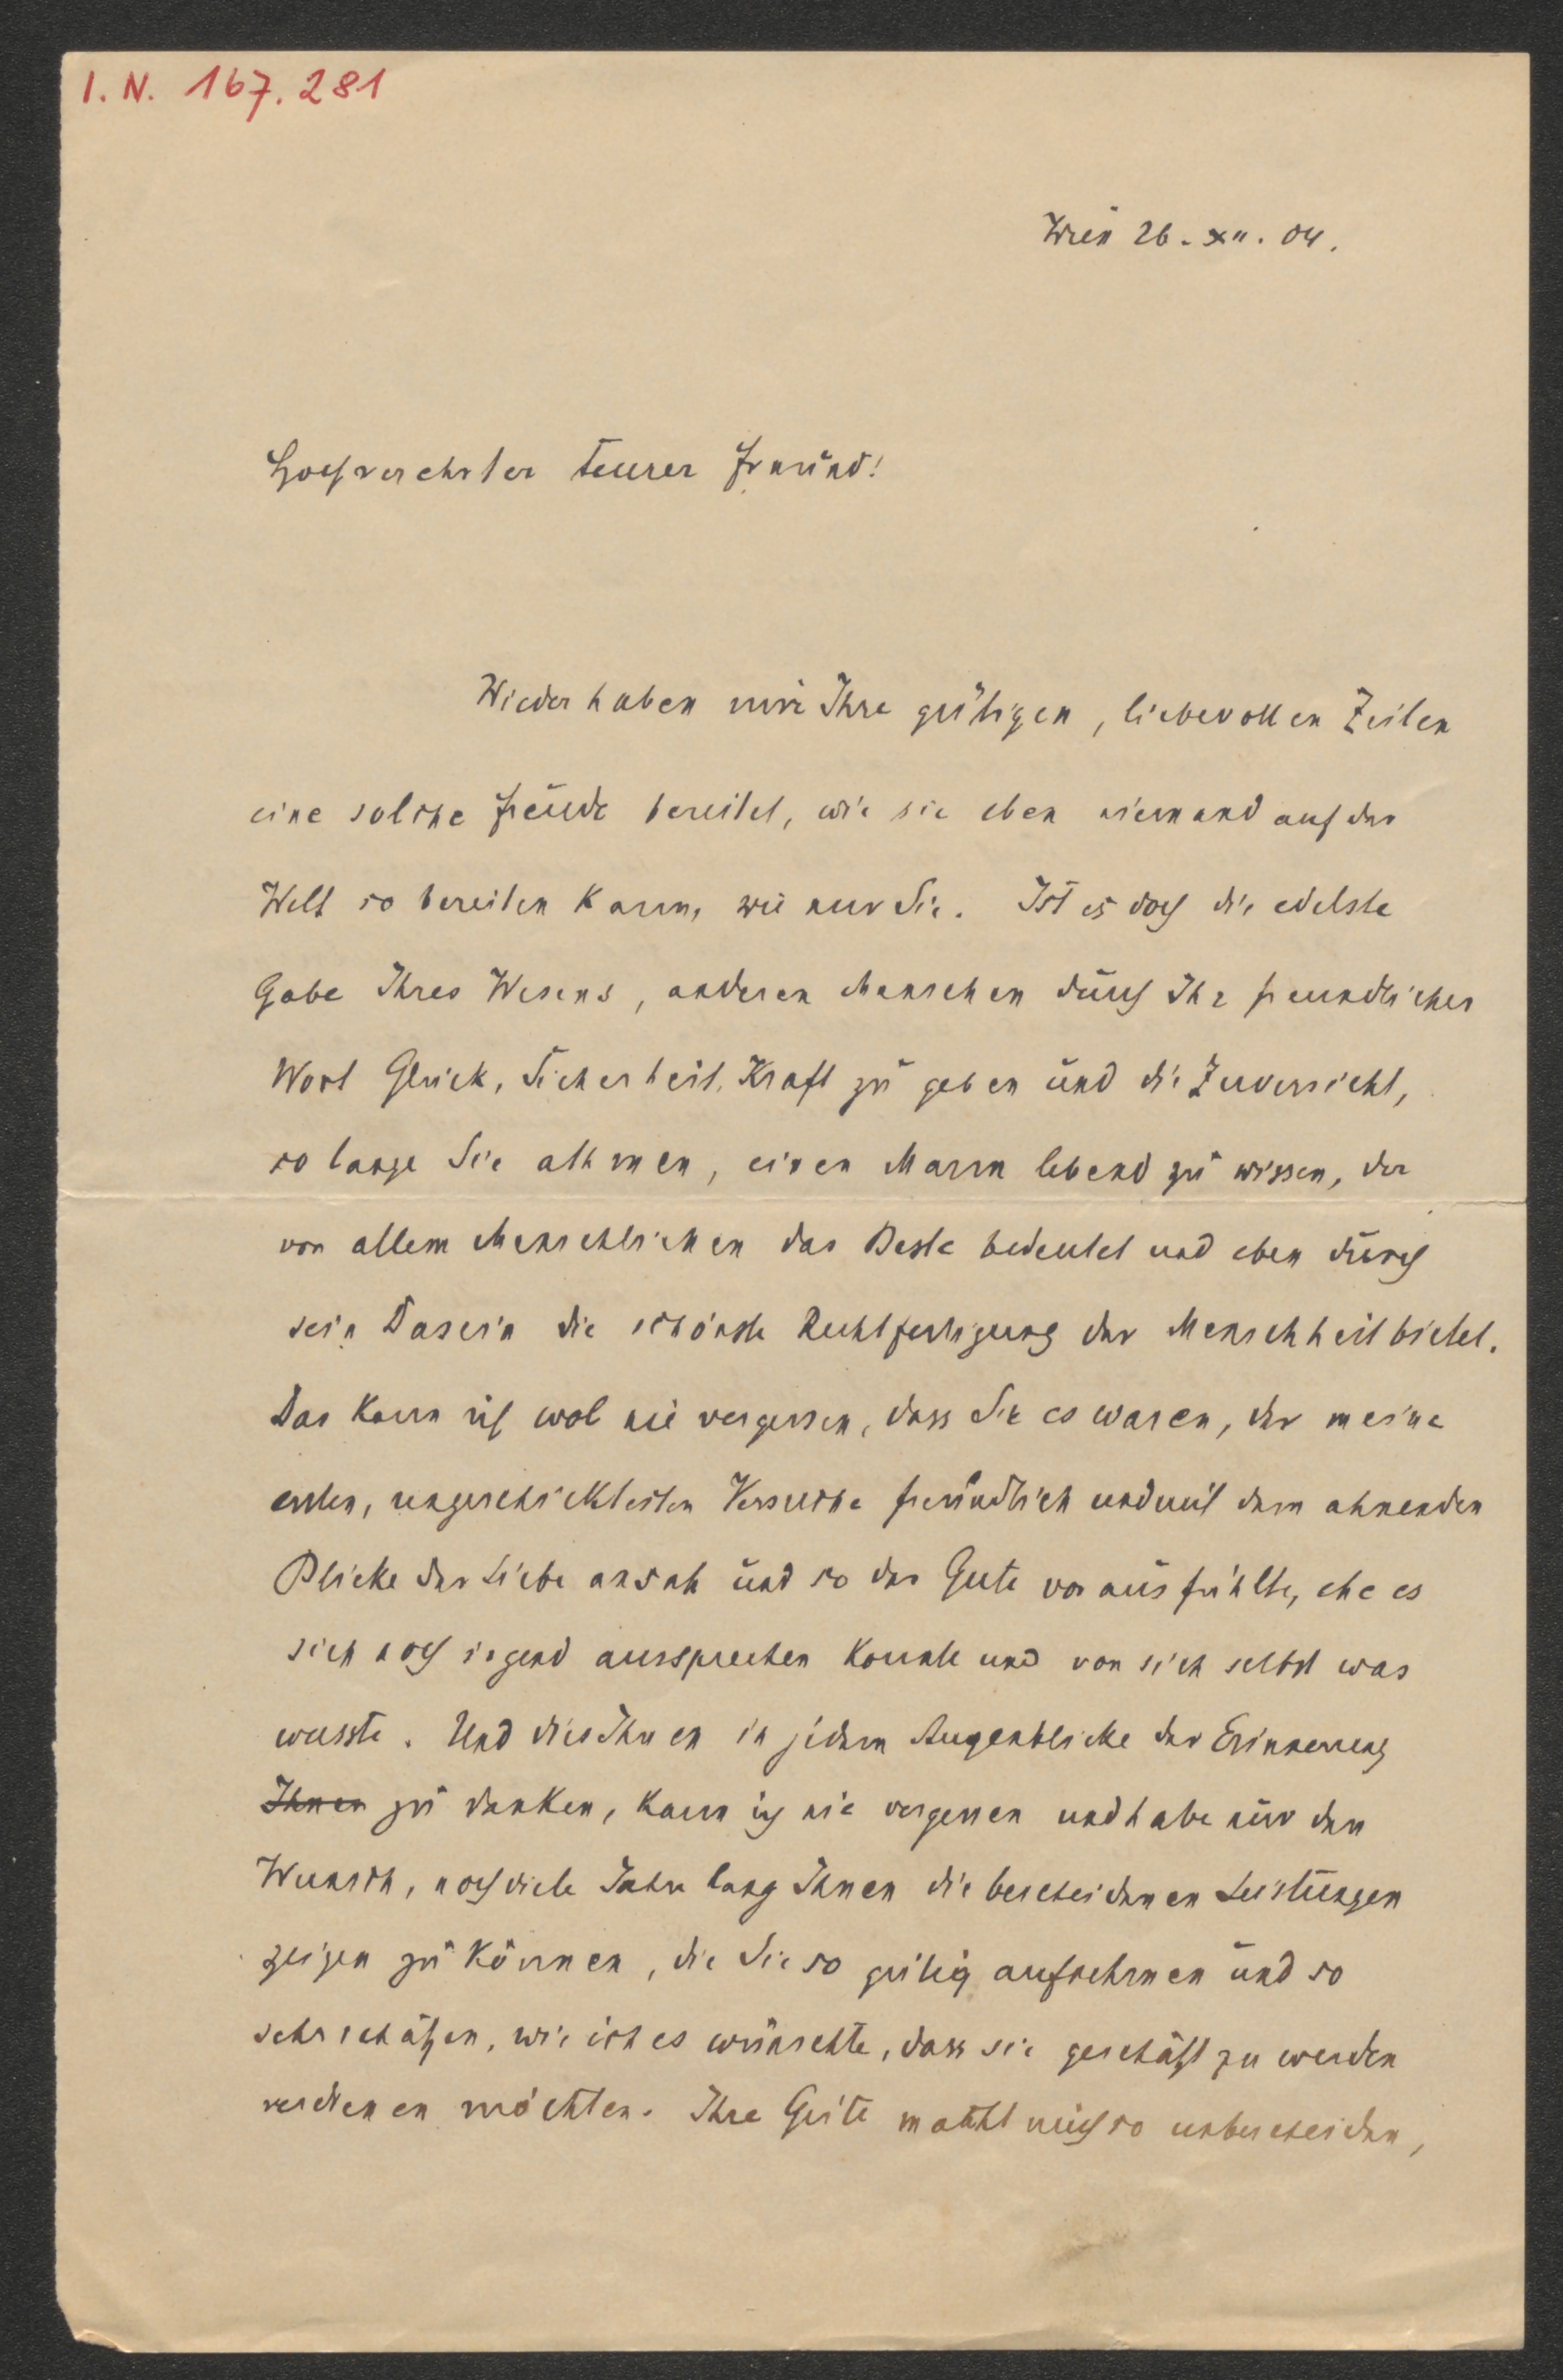 I. N. 167.281
Wien 26. XII. 04.
Hochverehrter teurer Freund!
Wieder haben mir Ihre gütigen, liebevollen Zeilen
eine solche Freude bereitet, wie sie eben niemand auf der
Welt so bereiten kann, wie nur Sie. Ist es doch die edelste
Gabe Ihres Wesens, anderen Menschen durch Ihr freundliches
Wort Glück, Sicherheit, Kraft zu geben und die Zuversicht,
so lange Sie athmen, einen Mann lebend zu wissen, der
von allem Menschlichen das Beste bedeutet und eben durch
sein Dasein die schönste Rechtfertigung der Menschheit bietet.
Das kann ich wol nie vergessen, dass Sie es waren, der meine
ersten, ungeschicktesten Versuche freundlich und mit dem ahnenden
Blicke der Liebe ansah und so das Gute vorausfühlte, ehe es
sich noch irgend aussprechen konnte und von sich selbst was
wusste. Und dies Ihnen in jedem Augenblicke der Erinnerung
Ihnen zu danken, kann ich nie vergessen und habe nur den
Wunsch, noch viele Jahre lang Ihnen die bescheidenen Leistungen
zeigen zu können, die Sie so gütig aufnehmen und so
sehr schätzen, wie ich es wünschte, dass sie geschätzt zu werden
verdienen möchten. Ihre Güte macht mich so unbescheiden,